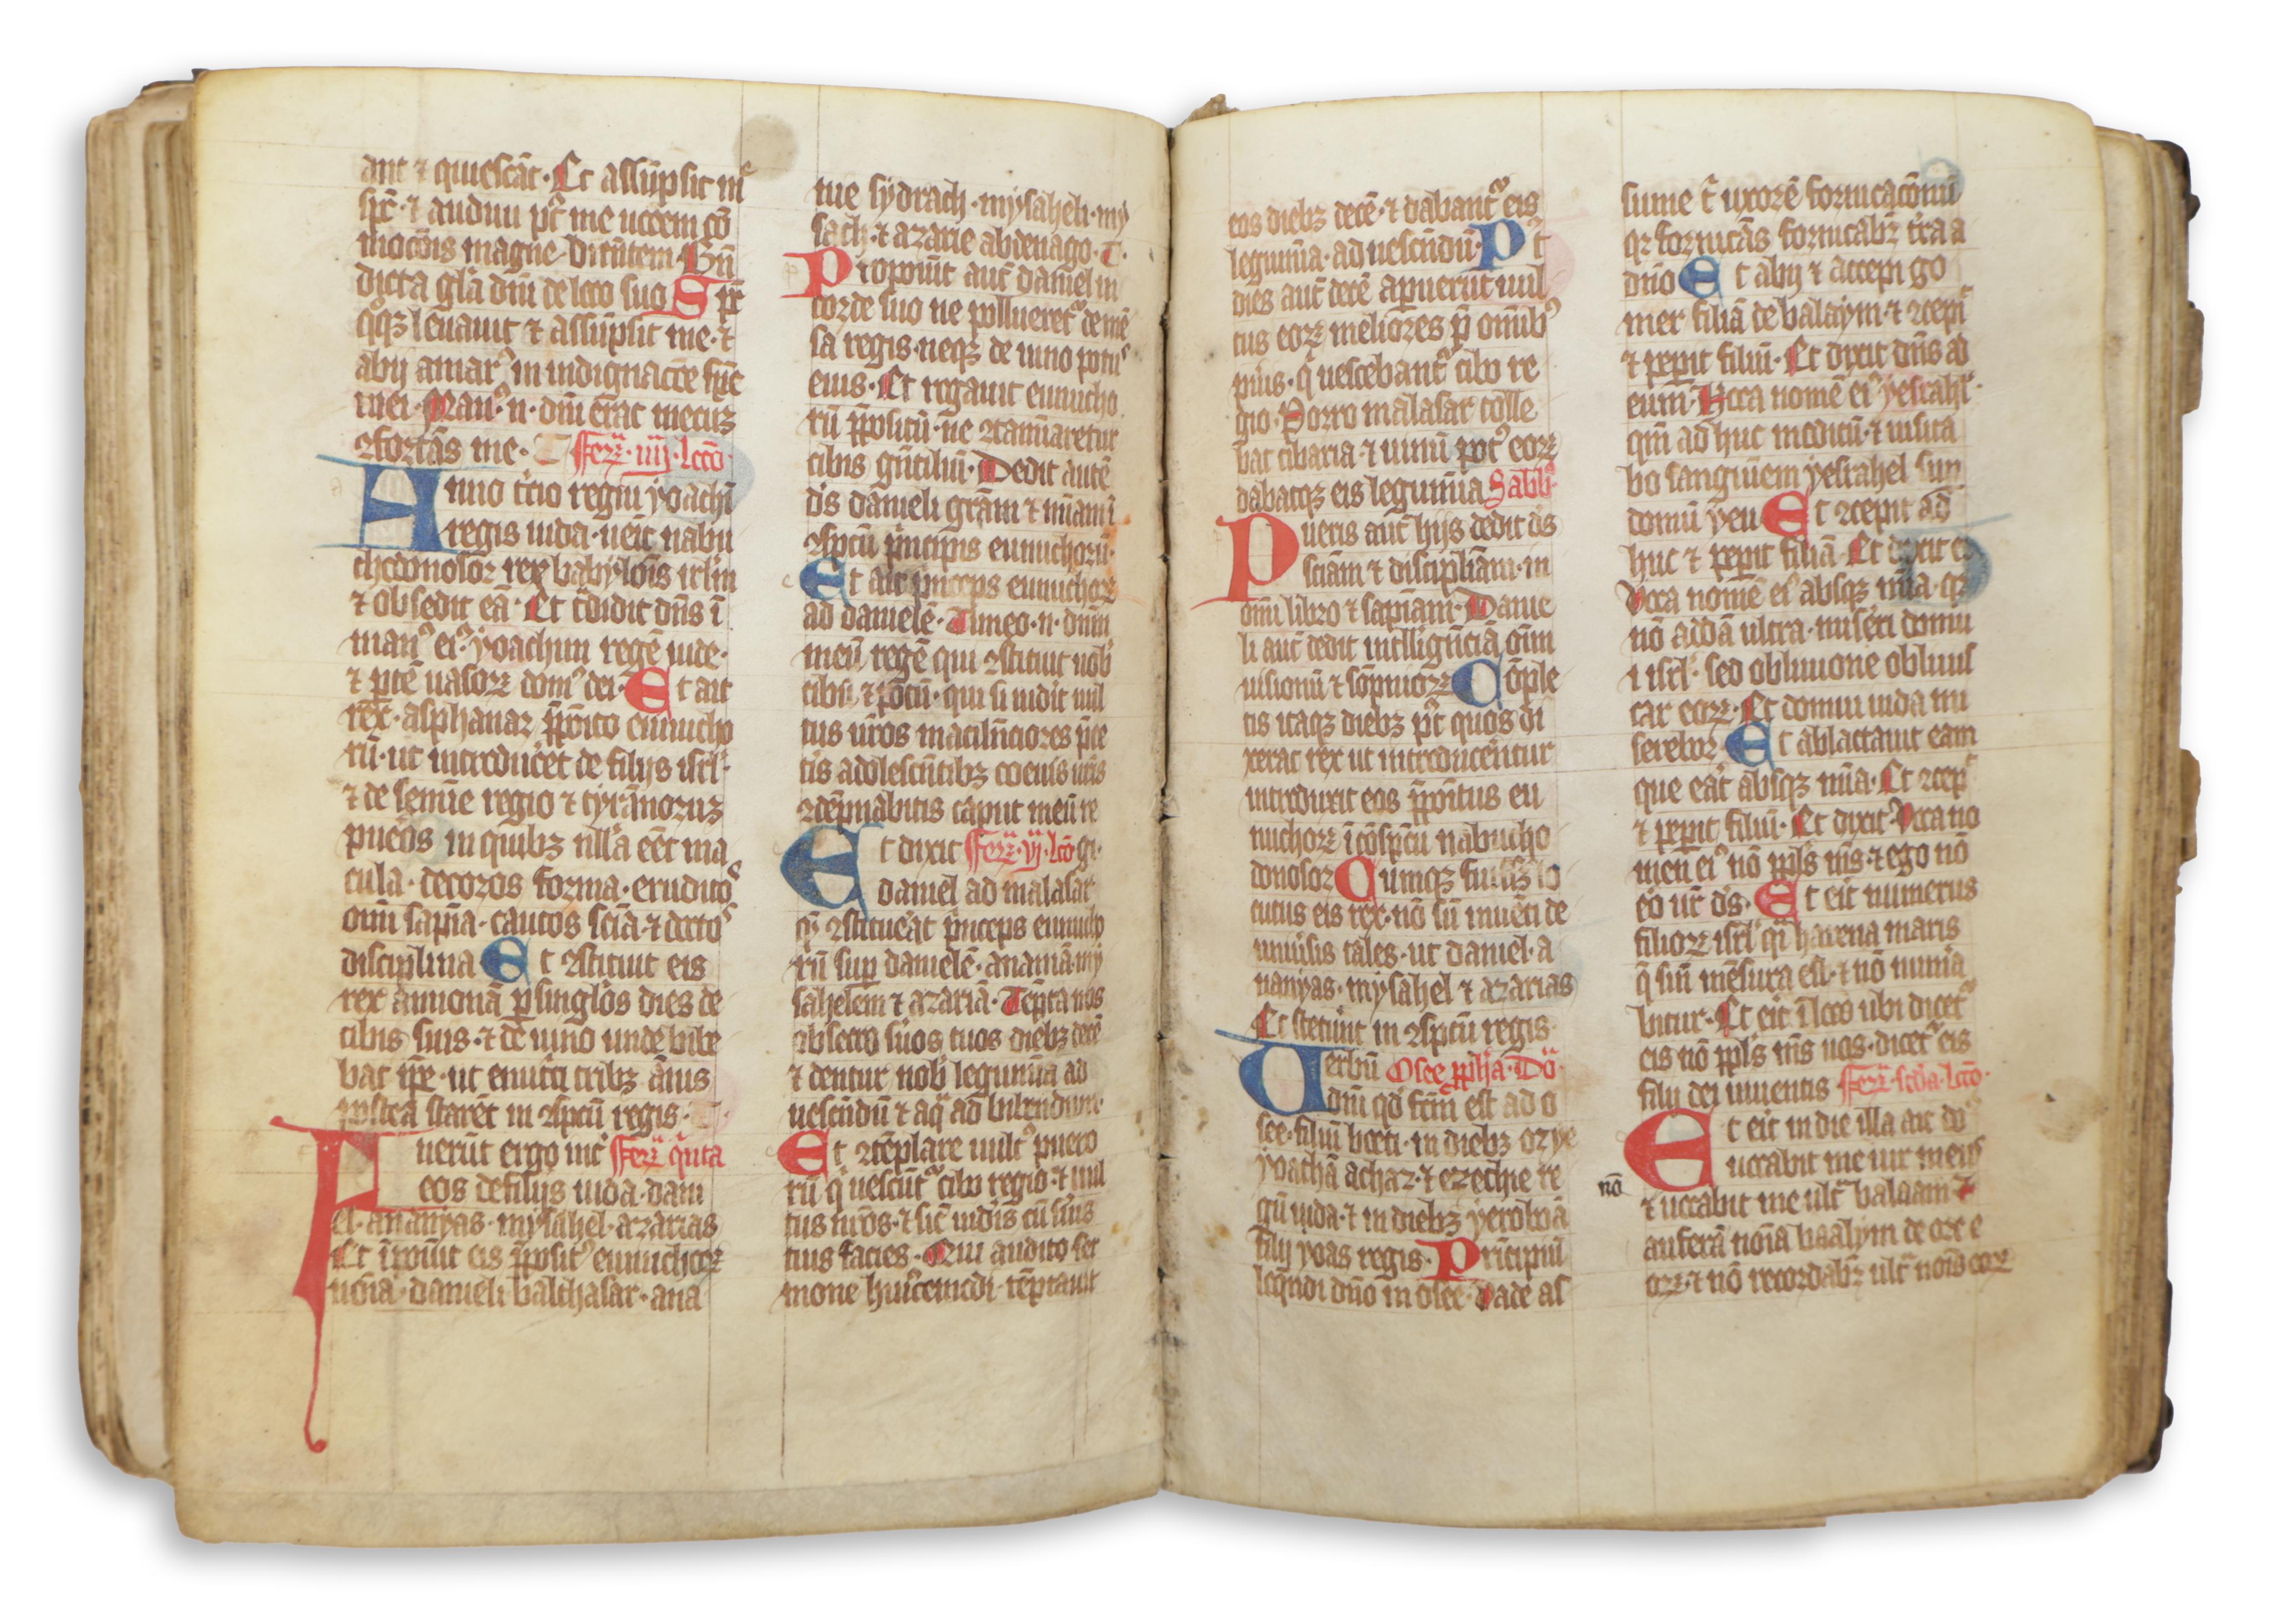 ant ⁊ quiescāt. Et assūpsit me
spc̄. ⁊ audiui pꝰ me uocem cō
mocōnis magne. Dicētem. Bn̄
dicta gl̄a dn̄i de loco suo Spc̄
qꝫ leuauit ⁊ assūpsit me. ⁊
abij amarꝰ in indignacōe spc̄
mei. Manꝰ n̄. dn̄i erat mecuꝫ
ꝯfortās me. T ffer̄. iiij. lcc̄o.
Anno t̄cio regni yoachī
regis iuda. ueit nabu
chodonosor rex babylōis irl̄m
⁊ obsedit eā. Et t̄didit dn̄s ī
manꝰ eiꝰ. yoachim regē iude.
⁊ ptē uasoꝝ domꝰ dei. Et ait
rex. asphanaz p̄pōito eunucho
rū. ut introduc̄et de filijs isrl̄.
⁊ de semīe regio ⁊ tyrānoruꝫ
pueōs in quibꝫ nlla eēt ma
cula. decoros forma. eruditoˢ
om̄i sapīa. cautos scīa. ⁊ doctoˢ
disciplina Et ꝯstituit eis
rex annonā ꝑ singl̄os dies de
cibis suis. ⁊ de uino unde bibe
bat ip̄e. ut enutti tribꝫ ānis
postea starēt in ꝯspcū regis. T.
Fuerūt ergo int̄ ffer̄ q̄nta
eos de filijs iuda. dani
el. ananyas. mysahel. azarias
Et īpoūit eis p̄positꝰ eunuchoꝝ
noīa. danieli balthasar. ana
nie sydrach. mysaheli. my
sach. ⁊ azarie abdenago. T.
Proponit aut̄ daniel in
corde suo ne pollueretꝰ de mē
sa regis. neqꝫ de uino potuˢ
eius. Et rogauit eunucho
rū p̄positū. ne ꝯtaminaretur
cibis gn̄tiliū. Dedit autē
ds̄ danieli grām ⁊ mīam ī
ꝯspcū p̄ncipis eunuchorū.
Et ait p̄nceps eunuchoꝝ
ad danielē. Timeo. n̄. dnm̄
meū regē qui ꝯstituit nob̄
cibū. ⁊ potū. qui si uidīt uul
tus ur̄os macilēciores p̄ce
tis adolescn̄tibꝫ coeuis ur̄is
ꝯdēpnabitis caput meū re
Et dixit ffer̄. vj. lcc̄o gi.
daniel ad malasar
qꝫ ꝯstitueat p̄nceps eunucho
rū suꝑ danielē. ananiā. my
sahelem ⁊ azariā. Tēpta nos
obsecro s̄uos tuos diebꝫ decē
⁊ dentur nob̄ legumīa ad
uescn̄dū ⁊ aq̄ ad bibendum.
Et ꝯtēplare uultꝰ puero
rū q̄ uescūtꝰ cibo regio. ⁊ uul
tus nr̄os. ⁊ sic̄ uidīs cū s̄uis
tuis facies. Qui audito ser
mone huic̄emodi. tēptauit
eos diebꝫ decē. ⁊ dabantꝰ eis
legumīa. ad uescn̄dū. Pt̄
dies aut̄ decē apuerūt uul
tus eoꝝ meliores p̄ omībꝰ
pūis. q̄ uescebantꝰ cibo re
gio. Porro malasar tolle
bat cibaria. ⁊ uinū potꝰ eoꝝ
dabatqꝫ eis legumīa Sabb̄o
Pueris aut̄ hijs dedit ds̄
sciām ⁊ disciplīam. in
om̄i libro ⁊ sapīam. Danie
li aut̄ dedit intllignc̄iā om̄m
uisionū ⁊ sōpnioꝝ Cōple
tis itaqꝫ diebꝫ pt̄ quos di
xerat rex ut introducerentur
introduxit eos p̄pōitus eu
nuchoꝝ ī cōspcū nabucho
donosor Cumqꝫ fuissꝫ lo
cutus eis rex. nō sū inuēti de
uniūsis tales. ut daniel. a
nanyas. mysahel ⁊ azarias
Et stetūnt in ꝯspcū regis.
Uerbū Osee ꝓph̄a. Dō.
dn̄i qd̄ fc̄m est ad o
see. filiū beeri. in diebꝫ ozye
yoathā achaz. ⁊ ezechie re
gū iuda. ⁊ in diebꝫ yeroboā
filij yoas regis. Principiū
loqn̄di dn̄o in osee. Uade as
sume t̄ uxorē fornicacōnū
qꝛ fornicās fornicabr̄ t̄ra a
dn̄o Et abij ⁊ accepi go
mer filiā debalaym. ⁊ ꝯcepit
⁊ pepit filiū. Et dixit dn̄s ad
eum. Uoca nomē eiꝰ yesrahl̄.
qm̄ ad huc modicū. ⁊ uisita
bo sanguinem yesrahel suꝑ
domū yeu Et ꝯcepit ad
huc ⁊ pepit filiā. Et dixit ei
Uoca nomē eiꝰ absqꝫ mīa. qꝛ
nō addā ultra. misēri domu
i isrl̄. sed obliuione obliuis
car eoꝝ. Et domui iuda mi
serebor. Et ablactauit eam
que eāt absqꝫ mīa. Et ꝯcepͭ
⁊ pepit filiū. Et dixit. Uoca no
men eiꝰ nō ppl̄s ms̄. ⁊ ego nō
eō ur̄ ds̄. Et eīt numerus
filioꝝ isrl̄ q̄i harena maris
q̄ siū mēsura est. ⁊ nō numīa
bitur. Et eīt ī loco ubi dicetꝰ
eis nō ppl̄s ms̄ uos. dicetꝰ eis
filij dei uiuentis ffer̄. scd̄a. lcc̄o.
Et eīt in die illa ait dō
uocabit me uir meus
nō
⁊ uocabit me ultꝰ balaam ⁊
auferā noīa baalym de ore e
oꝝ. ⁊ nō recordabr̄ ultꝰ noīs eoꝝ